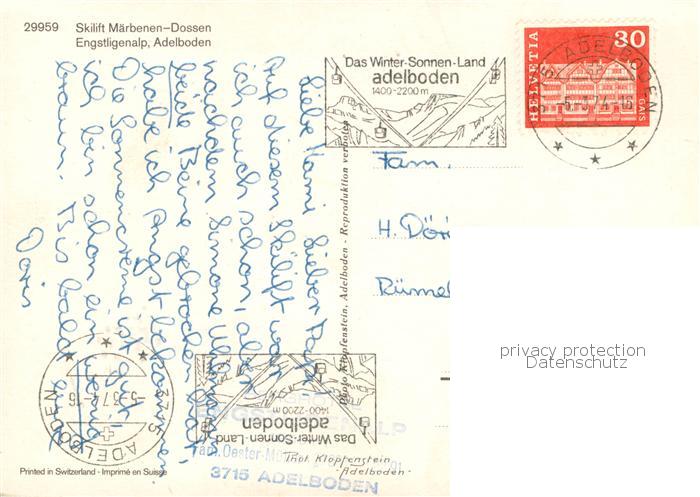 29959 Skilift Märbenen–Dossen
Engstligenalp, Adelboden
Das Winter-Sonnen-Land
adelboden
1400-2200 m
HELVETIA
30
GAIS
ADELBODEN
-5.-3.74-16
Fam.
H. Döri
Rümel
Liebe Mami Lieber Papi
Auf diesem Skilift war
ich auch schon, aber
nachdem Simone
beide Beine gebrochen hat
habe ich Angst bekommen
Die Sonnencreme ist gut
ich bin schon ein wenig
braun. Bis bald eure
Doris
Photo Klopfenstein, Adelboden - Reproduktion verboten
privacy protection
Datenschutz
3715
ADELBODEN
-5.-3.74-16
Das Winter-Sonnen-Land
adelboden
1400-2200 m
ENGSTLIGENALP
Fam. Oester
3715 ADELBODEN
Phot. Klopfenstein
-Adelboden-
Printed in Switzerland - Imprimé en Suisse